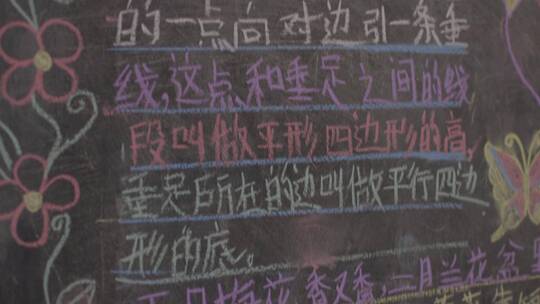 的一点向对边引一条垂
线,这点和垂足之间的线
段叫做平形四边形的高,
垂足所在的边叫做平行四边
形的底。
梅花香又香,二月兰花盆里